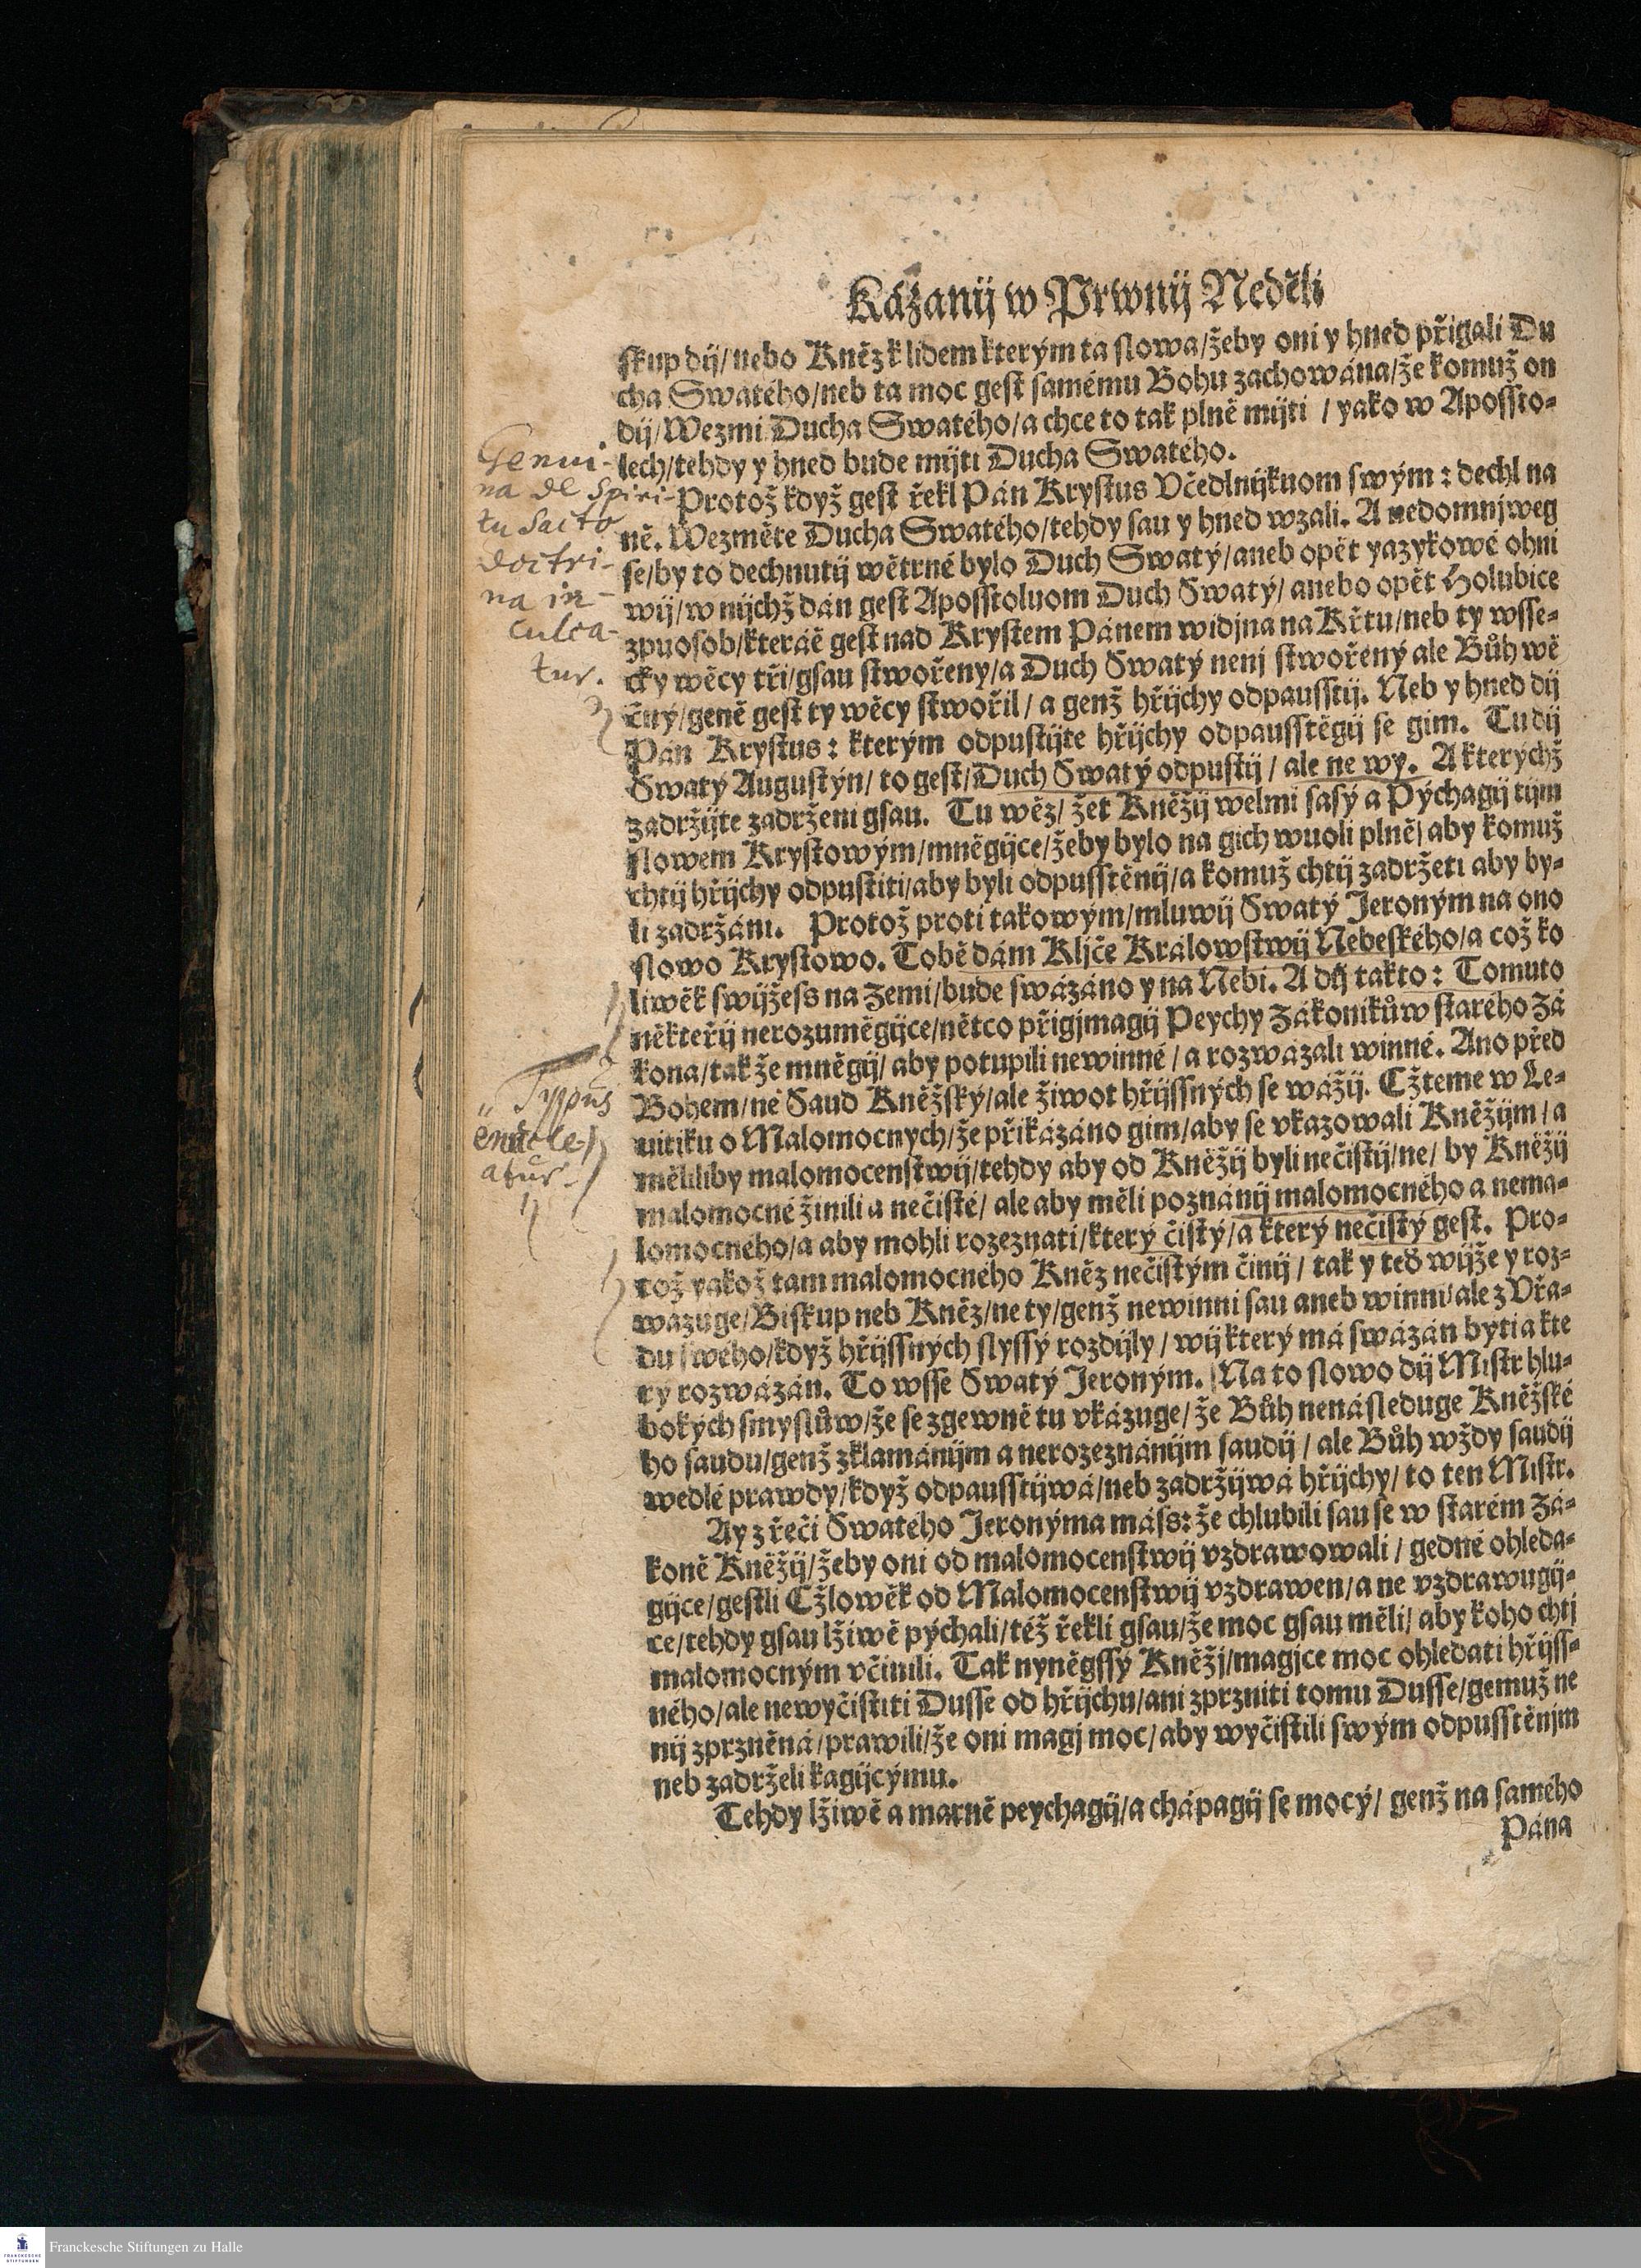 Kázanij w Prwnij Neděli
skup dij/ nebo Kněz k lidem kterým ta slowa/ žeby oni y hned přigali Du
cha Swatého/ neb ta moc gest samému Bohu zachowána/ že komuž on
dij/ Wezmi Ducha Swatého/ a chce to tak plně mijti / yako w Aposssto-
lech/ tehdy y hned bude mijti Ducha Swatého.
Protož když gest řekl Pán Krystus Včedlnijkuom swým: dechl na
ně. Wezměte Ducha Swatého/ tehdy sau y hned wzali. A nedomnjweg
se/ by to dechnutij wětrné bylo Duch Swatý/ aneb opět yazykowé ohni
wij/ w nijchž dán gest Aposstoluom Duch Swatý/ anebo opět Holubice
zpuosob/ kteráě gest nad Krystem Pánem widjna na Křtu/ neb ty wsse-
cky wěcy tři/ gsau stwořeny/ a Duch Swatý nenj stwořený ale Bůh wě
čný/ geně gest ty wěcy stwořil/ a genž hřijchy odpausstij. Neb y hned dij
Pán Krystus: kterým odpustijte hřijchy odpausstěgij se gim. Tu dij
Swatý Augustýn/ to gest/ Duch Swatý odpustij / ale ne wy. A kterýchž
zadržijte zadrženi gsau. Tu wěz/ žet Kněžij welmi sasý a Pýchagij tijm
slowem Krystowým/ mněgijce/ žeby bylo na gich wuoli plně/ aby komuž
chtij hřijchy odpustiti/ aby byli odpusstěnij/ a komuž chtij zadržeti aby by-
li zadržáni. Protož proti takowým/ mluwij Swatý Jeroným na ono
slowo Krystowo. Tobě dám Kljče Králowstwij Nebeského/ a což ko
liwěk swijžess na Zemi/ bude swázáno y na Nebi. A dij takto: Tomuto
někteřij nerozumegijce/ nětco přigjmagij Peychy Zákonikůw starého Zá
kona/ tak že mněgij/ aby potupili newinné / a rozwázali winné. Ano před
Bohem/ ne Saud Kněžský/ ale žiwot hřijssných se wážij. Cžteme w Le-
uitiku o Malomocných/ že přikázáno gim/ aby se vkazowali Kněžijm / a
měliliby malomocenstwij/ tehdy aby od Kněžij byli nečistij/ ne/ by Kněžij
malomocné žinili a nečisté/ ale aby měli poznánij malomocného a nema-
lomocného/ a aby mohli rozeznati/ který čistý/ a který nečistý gest. Pro-
tož yakož tam malomocného Kněz nečistým činij / tak y teď wijže y roz-
wazuge/ Biskup neb Kněz/ ne ty/ genž newinni sau aneb winni/ ale z Vřa-
du swého/ když hřijssných slyssý rozdijly / wij který má swázán býti a kte
rý rozwázán. To wsse Swatý Jeroným. Na to slowo dij Mistr hlu-
bokých smyslůw/ že se zgewně tu vkázuge/ že Bůh nenásleduge Kněžské
ho saudu/ genž zklamánijm a nerozeznánijm saudij / ale Bůh wždy saudij
wedlé prawdy/ když odpausstijwá/ neb zadržijwá hřijchy/ to ten Mistr.
Ay z řeči Swatého Jeronýma máss: že chlubili sau se w starém Zá-
koně Kněžij/ žeby oni od malomocenstwij vzdrawowali / gedné ohleda-
gijce/ gestli Cžlowěk od Malomocenstwij vzdrawen/ a ne vzdrawugij-
ce/ tehdy gsau lžiwě pýchali/ též řekli gsau/ že moc gsau měli/ aby koho chtj
malomocným včinili. Tak nyněgssý Kněžj/ magjce moc ohledati hřijss-
ného/ ale newyčistiti Dusse od hřijchu/ ani zprzniti tomu Dusse/ gemuž ne
nij zprzněná/ prawili/ že oni magj moc/ aby wyčistili swým odpusstěnjm
neb zadrželi kagijcýmu.
Tehdy lžiwě a marně peychagij/ a chápagij se mocý/ genž na samého
Pána
Genui-
na de Spiri-
tu Sacto
doctri-
na in-
culca-
tur.
Typus
enucle-
atur.
Franckesche Stiftungen zu Halle
FRANCKESCHE
STIFTUNGEN